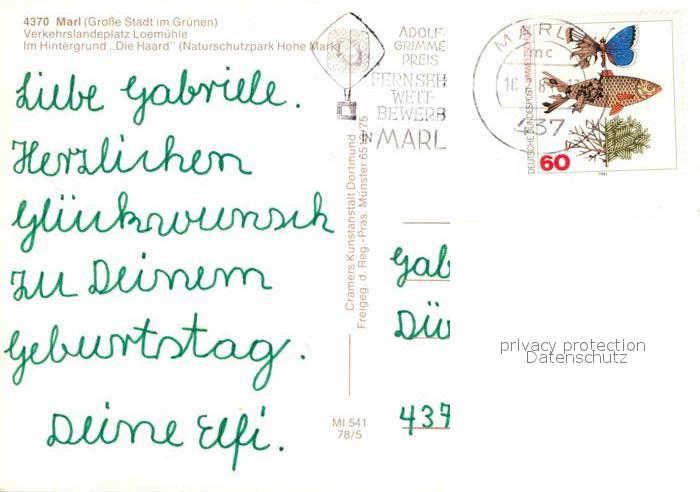 4370 Marl (Große Stadt im Grünen)
Verkehrslandeplatz Loemühle
Im Hintergrund „Die Haard" (Naturschutzpark Hohe Mark)
Liebe Gabriele.
Herzlichen
Glückwunsch
zu Deinem
Geburtstag.
Deine Elfi.
Cramers Kunstanstalt Dortmund
Freigeg. d. Reg.-Präs. Münster
MI 541
78/5
ADOLF-
GRIMME
PREIS
FERNSEH
WETT-
BEWERB
IN MARL
MARL
mc
437
DEUTSCHE BUNDESPOST UMWELTSCHUTZ
60
1981
Gab
Dü
437
privacy protection
Datenschutz